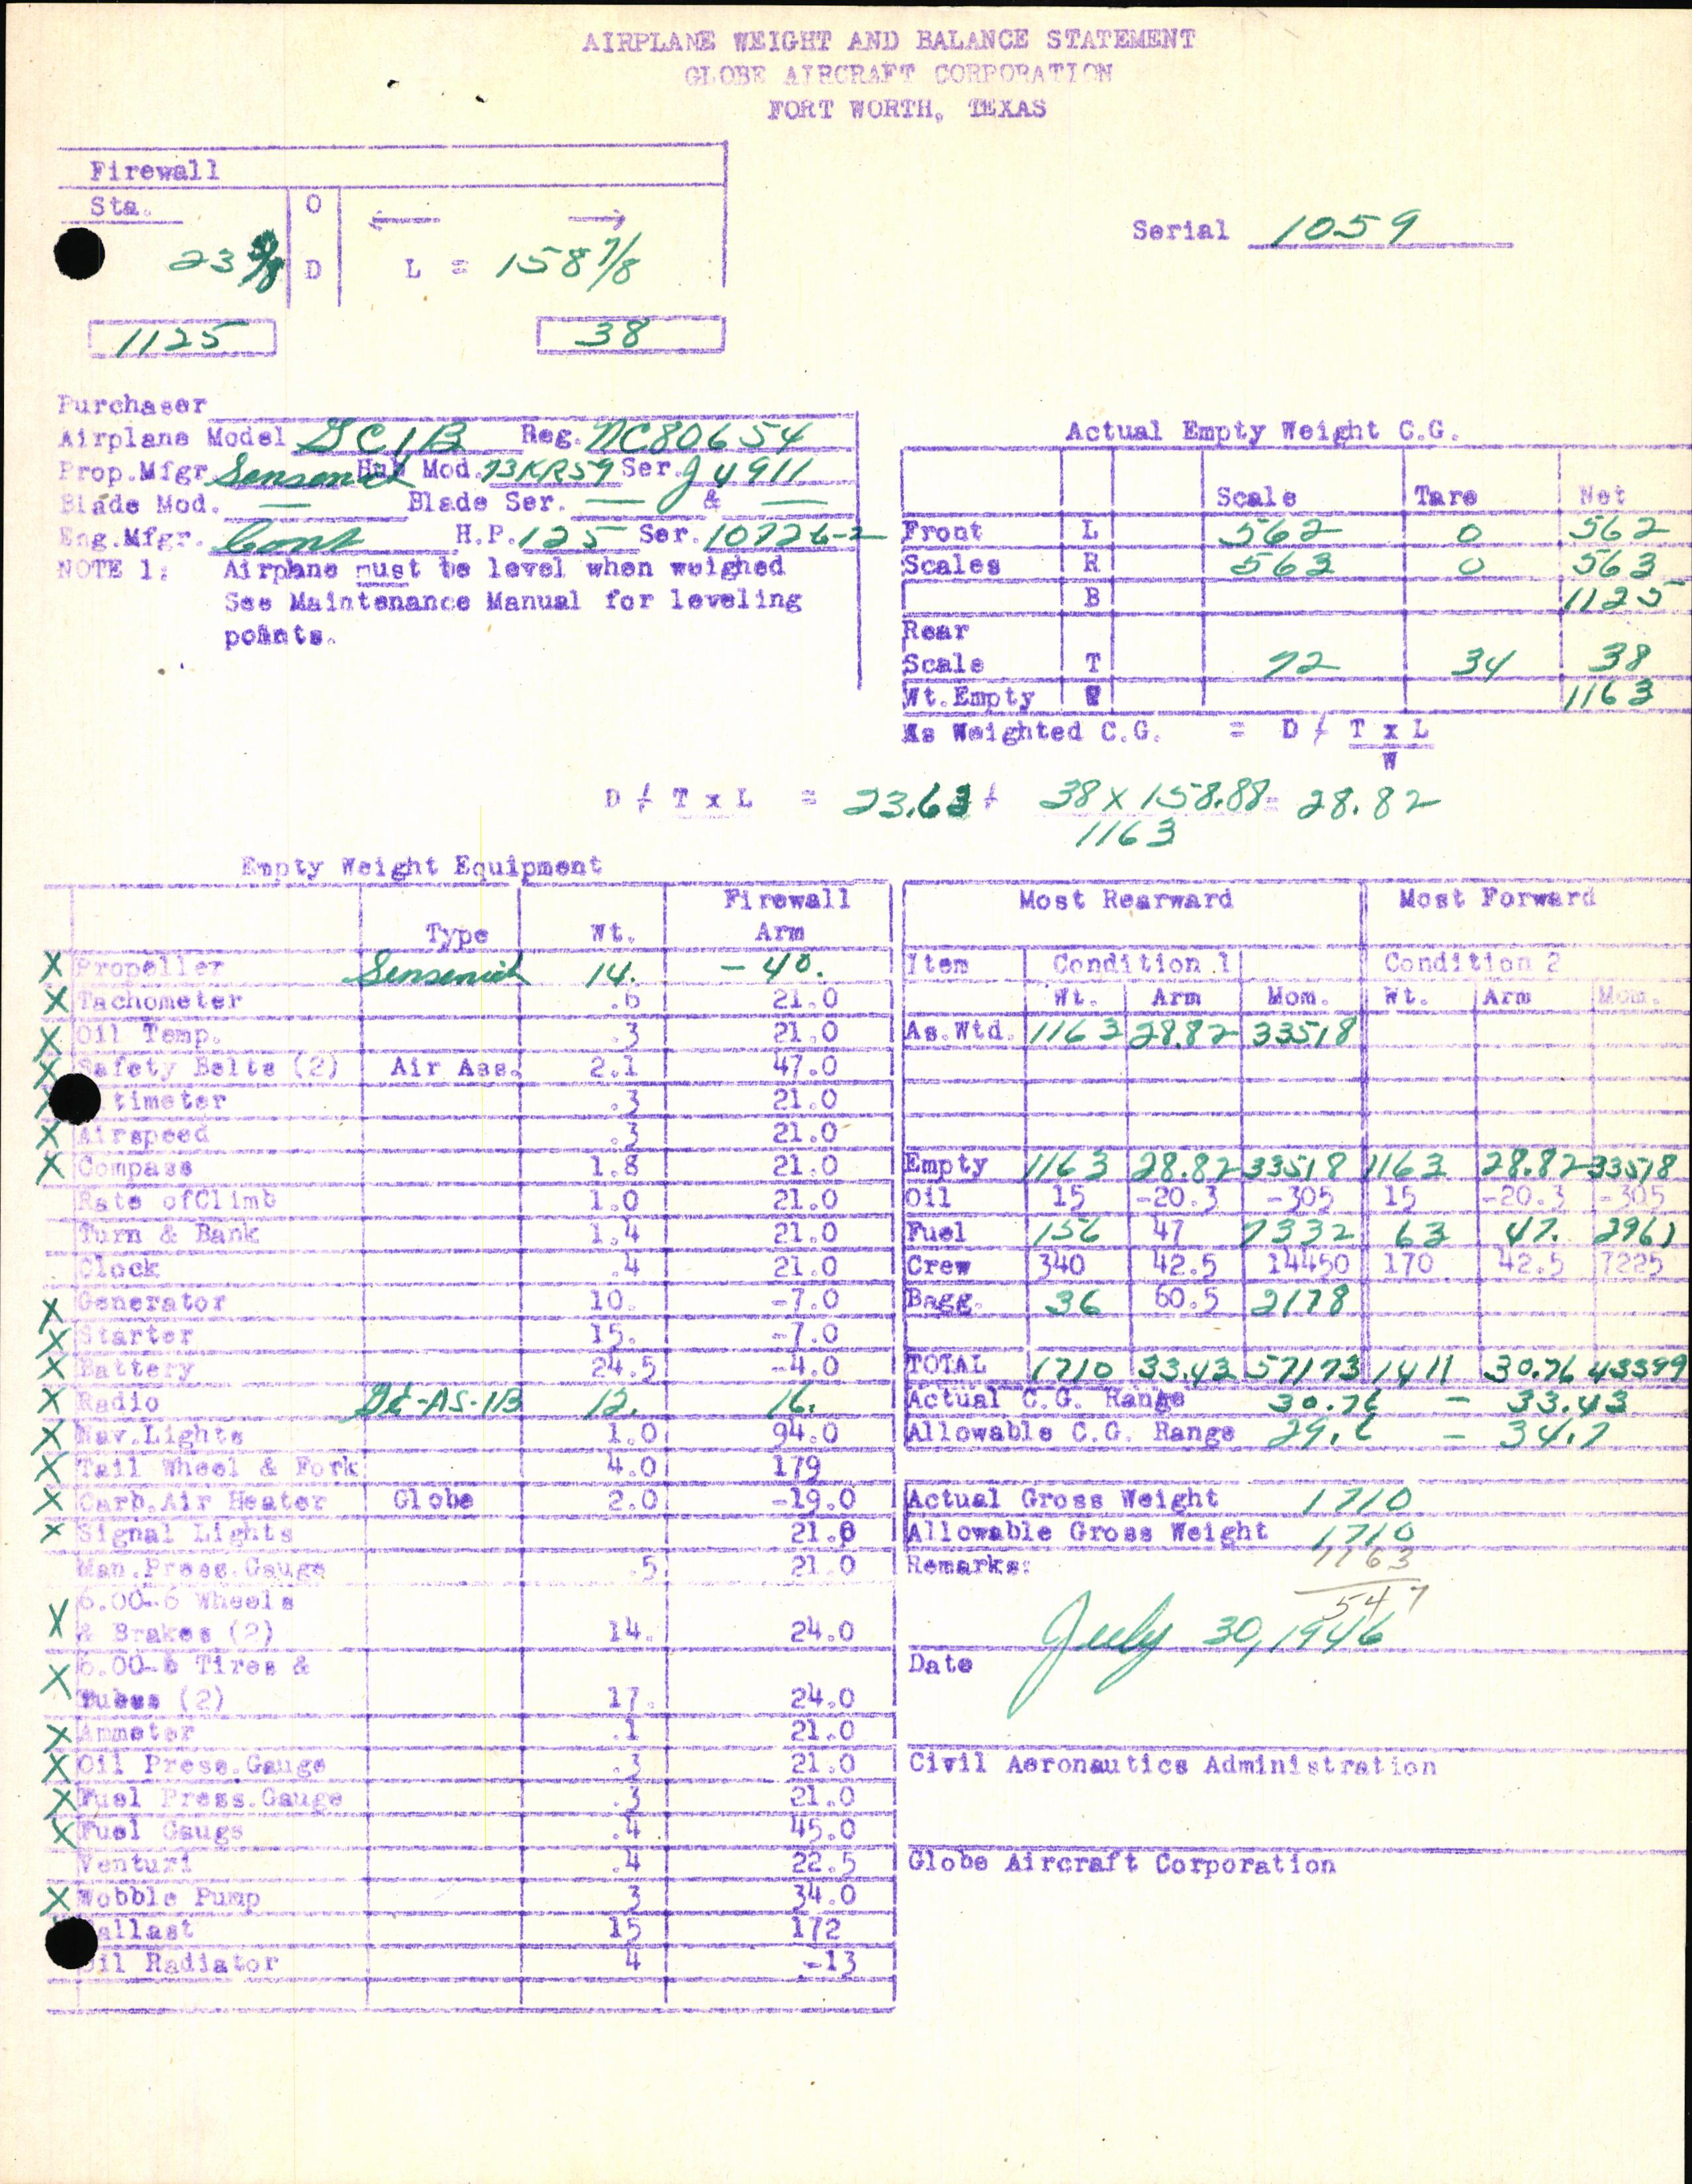 AIRPLANE WEIGHT AND BALANCE STATEMENT
GLOBE AIRCRAFT CORPORATION
FORT WORTH, TEXAS
Firewall
Sta. O
23 D L = 158 7/8
Serial 1059
1125 38
Purchaser
Airplane Model GC1B Reg. NC80654
Prop.Mfgr. Sensenich Hub Mod. 73KR59 Ser. J4911
Blade Mod. — Blade Ser. — & —
Eng.Mfgr. Cont H.P. 125 Ser. 10726-2
NOTE 1: Airphane must be level when weighed
See Maintenance Manual for leveling
points.
Actual Empty Weight C.G.
Scale Tare Net
Front L 562 0 562
Scales R 563 0 563
B 1125
Rear
Scale T 72 34 38
Wt.Empty W 1163
As Weighted C.G. = D + T x L
W
D + T x L = 23.63 + 38 x 158.88 = 28.82
1163
Empty Weight Equipment
Type Wt. Firewall Arm
X Propeller Sensenich 14. -40.
X Tachometer .6 21.0
X Oil Temp. .3 21.0
X Safety Belts (2) Air Ass. 2.1 47.0
X timeter .3 21.0
X Airspeed .3 21.0
X Compass 1.8 21.0
Rate ofClimb 1.0 21.0
Turn & Bank 1.4 21.0
Clock .4 21.0
X Generator 10. -7.0
X Starter 15. -7.0
X Battery 24.5 -4.0
X Radio GE-AS-1B 12. 16.
X Nav.Lights 1.0 94.0
X Tail Wheel & Fork 4.0 179
X Carb.Air Heater Globe 2.0 -19.0
X Signal Lights 21.0
Man.Press.Gauge .5 21.0
X 6.00-6 Wheels
& Brakes (2) 14. 24.0
X 6.00-6 Tires &
Tubes (2) 17. 24.0
X Ammeter .1 21.0
X Oil Press.Gauge .3 21.0
X Fuel Press.Gauge .3 21.0
X Fuel Gauge .4 45.0
Venturi .4 22.5
X Wobble Pump 3 34.0
allast 15 172
il Radiator 4 -13
Most Rearward Most Forward
Item Condition 1 Condition 2
Wt. Arm Mom. Wt. Arm Mom.
As.Wtd. 1163 28.82 33518
Empty 1163 28.82 33518 1163 28.82 33518
Oil 15 -20.3 -305 15 -20.3 -305
Fuel 156 47 7332 63 47. 2961
Crew 340 42.5 14450 170 42.5 7225
Bagg. 36 60.5 2178
TOTAL 1710 33.43 57173 1411 30.76 43399
Actual C.G. Range 30.76 - 33.43
Allowable C.G. Range 29.6 - 34.7
Actual Gross Weight 1710
Allowable Gross Weight 1710
Remarks: 1163
547
July 30, 1946
Date
Civil Aeronautics Administration
Globe Aircraft Corporation